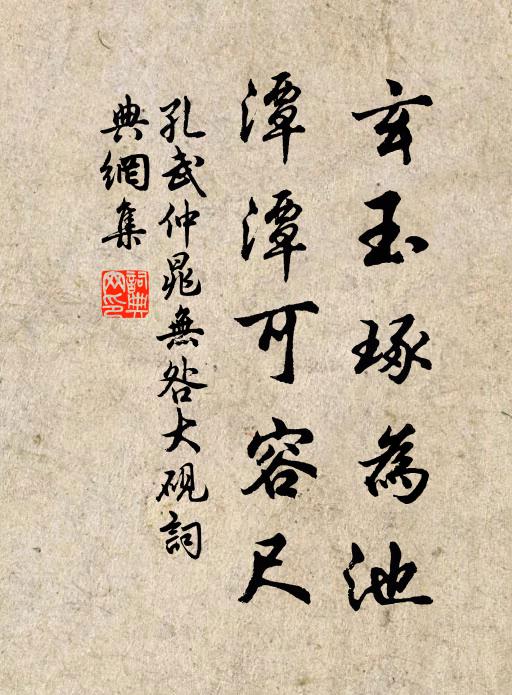 玄玉琢為池
潭潭可容尺
孔武仲晁無咎大硯詞
典網集
詞典網印